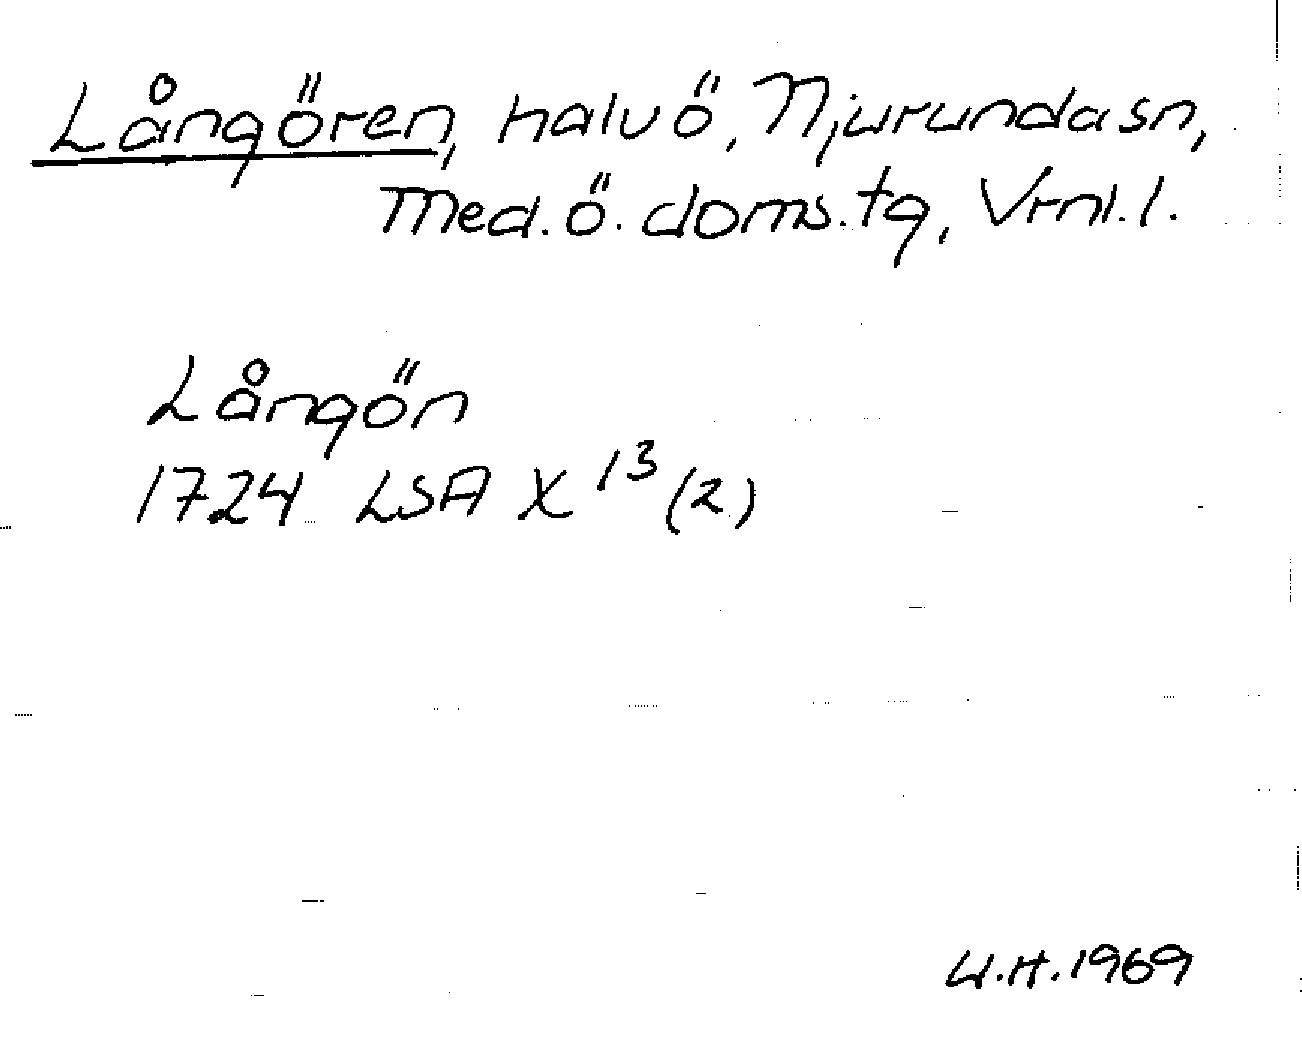 Långören, halvö, Njurunda sn,
Med.ö. doms.tg, Vrnl.l.
Långön
1724 LSA X 13 (2)
U.H. 1969